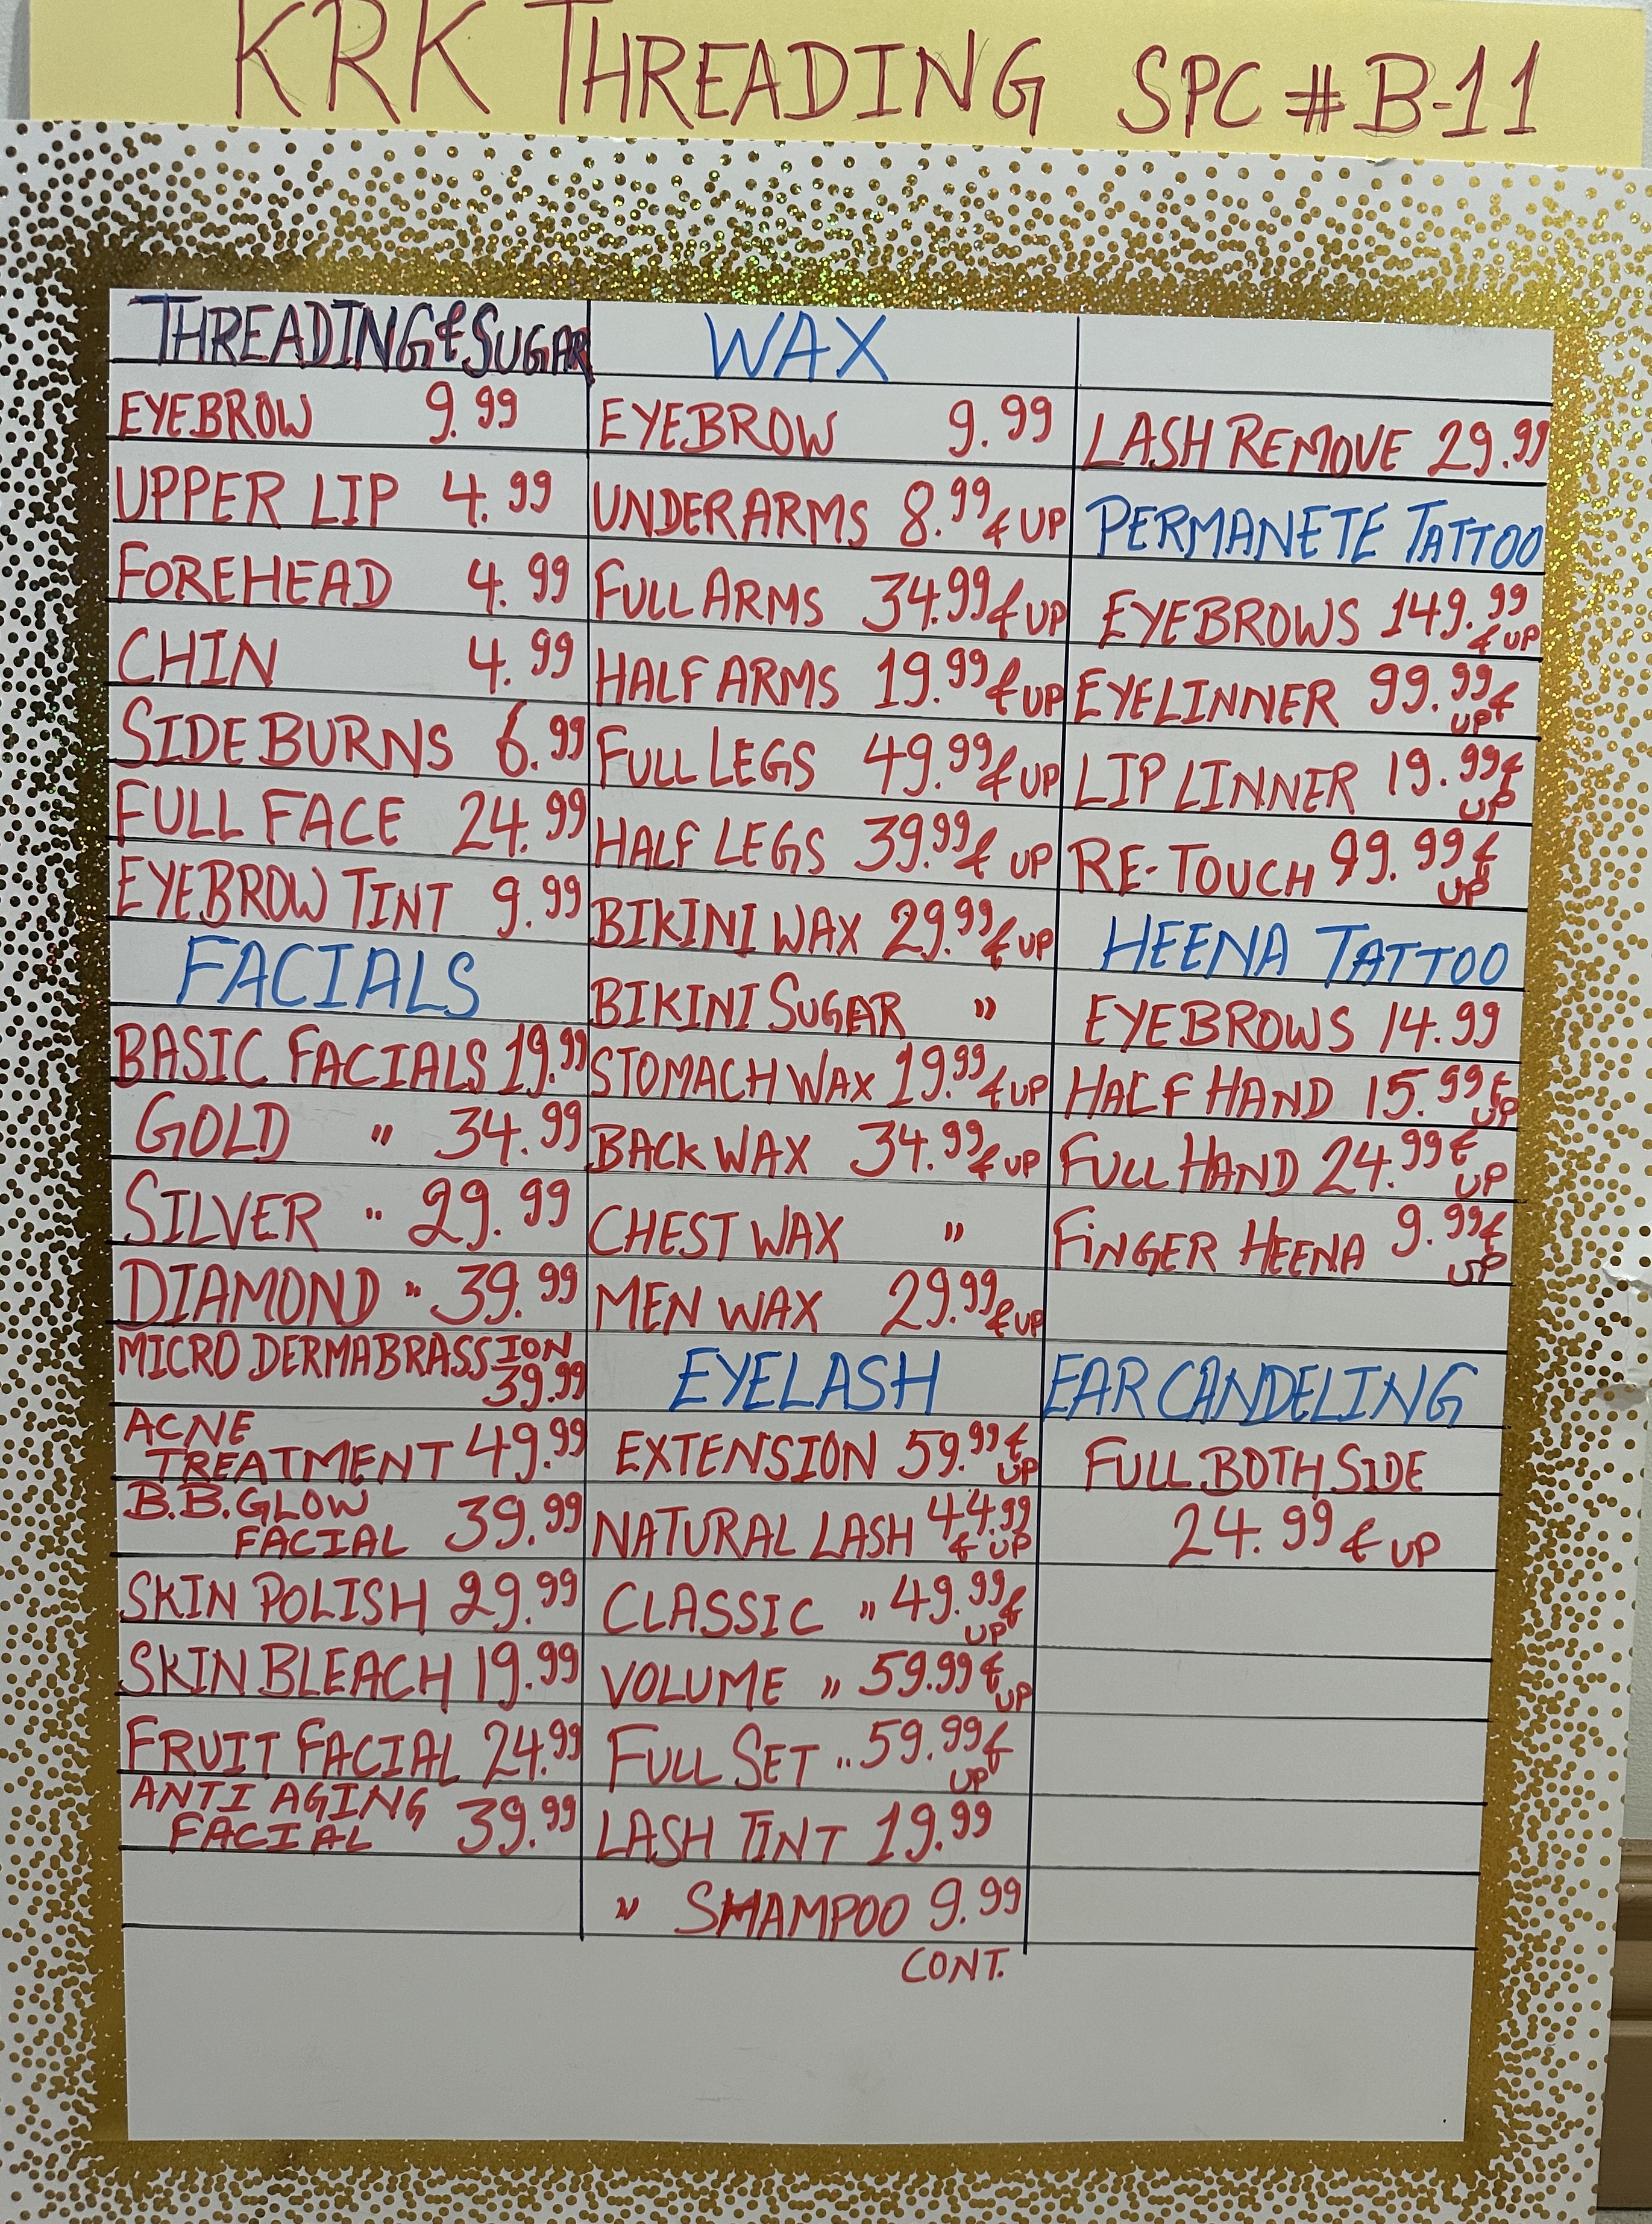 KRK THREADING SPC # B-11
THREADING & SUGAR
EYEBROW 9.99
UPPER LIP 4.99
FOREHEAD 4.99
CHIN 4.99
SIDE BURNS 6.99
FULL FACE 24.99
EYEBROW TINT 9.99
FACIALS
BASIC FACIALS 19.99
GOLD " 34.99
SILVER " 29.99
DIAMOND " 39.99
MICRO DERMABRASSION
39.99
ACNE
TREATMENT 49.99
B.B.GLOW
FACIAL 39.99
SKIN POLISH 29.99
SKIN BLEACH 19.99
FRUIT FACIAL 24.99
ANTI AGING
FACIAL 39.99
WAX
EYEBROW 9.99
UNDERARMS 8.99 & UP
FULL ARMS 34.99 & UP
HALF ARMS 19.99 & UP
FULL LEGS 49.99 & UP
HALF LEGS 39.99 & UP
BIKINI WAX 29.99 & UP
BIKINI SUGAR "
STOMACH WAX 19.99 & UP
BACK WAX 34.99 & UP
CHEST WAX "
MEN WAX 29.99 & UP
EYELASH
EXTENSION 59.99 & UP
NATURAL LASH 44.99 & UP
CLASSIC " 49.99 & UP
VOLUME " 59.99 & UP
FULL SET " 59.99 & UP
LASH TINT 19.99
" SHAMPOO 9.99
CONT.
LASH REMOVE 29.99
PERMANETE TATTOO
EYEBROWS 149.99 & UP
EYELINNER 99.99 & UP
LIP LINNER 19.99 & UP
RE-TOUCH 99.99 & UP
HEENA TATTOO
EYEBROWS 14.99
HALF HAND 15.99 & UP
FULL HAND 24.99 & UP
FINGER HEENA 9.99 & UP
EAR CANDELING
FULL BOTH SIDE
24.99 & UP